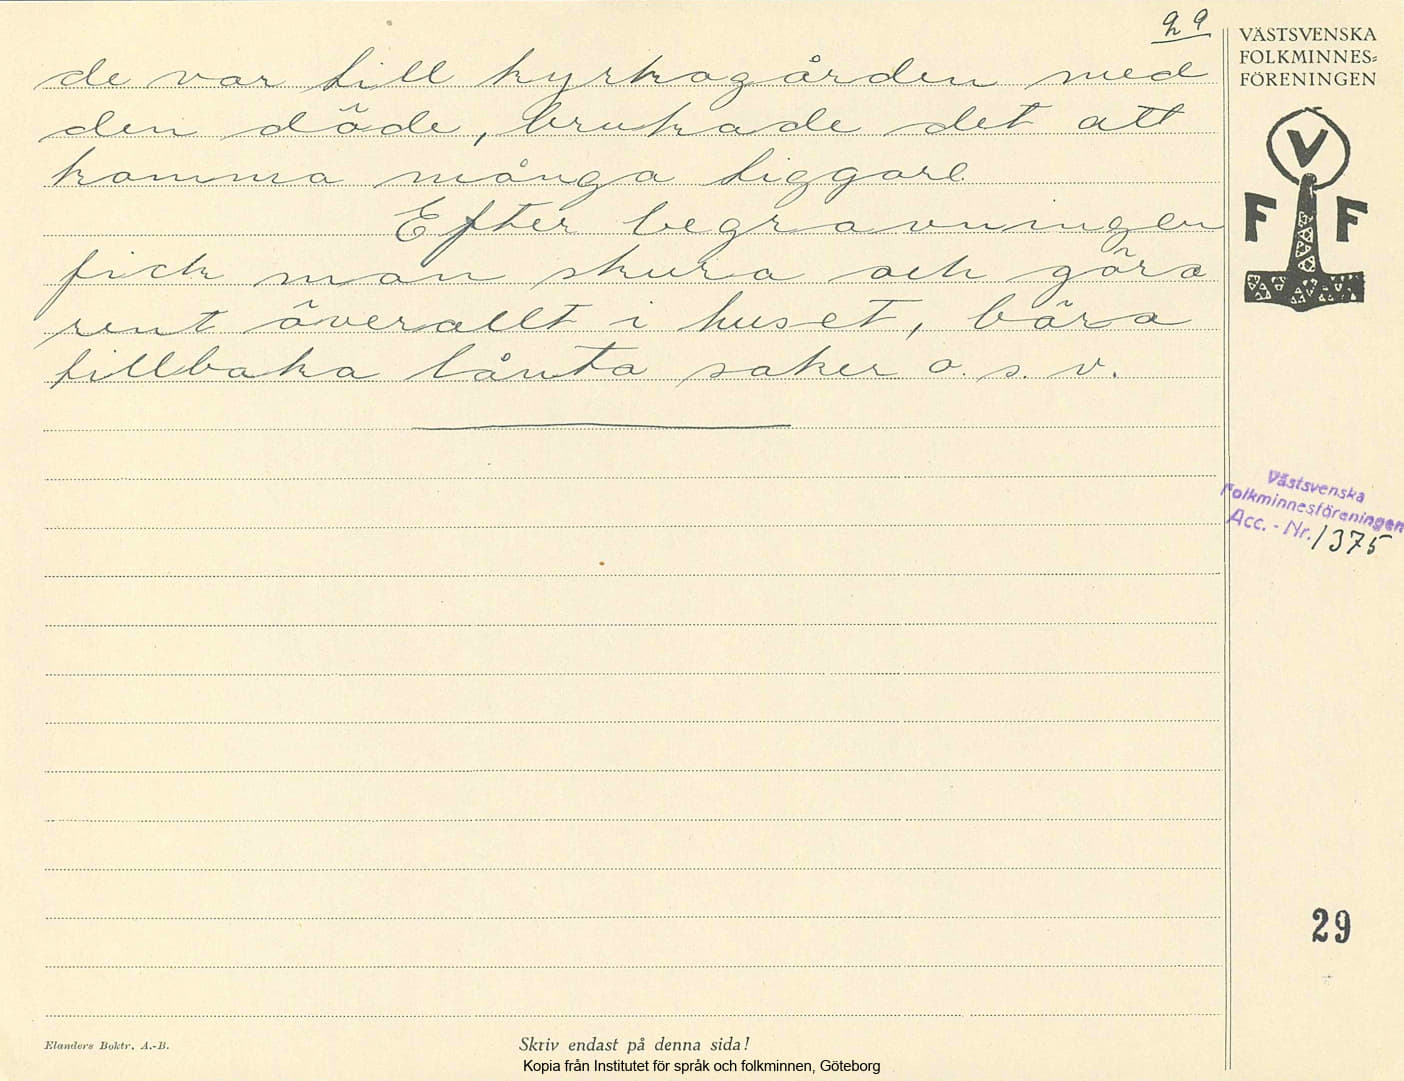 29
de var till kyrkogården med
den döde, brukade det att
komma många tiggare
Efter begravningen
fick man skura och göra
rent överallt i huset, bära
tillbaka lånta saker o. s. v.
VÄSTSVENSKA
FOLKMINNES=
FÖRENINGEN
V
F F
Västsvenska
Folkminnesföreningen
Acc. - Nr. 1375
29
Elanders Boktr. A.-B.
Skriv endast på denna sida!
Kopia från Institutet för språk och folkminnen, Göteborg